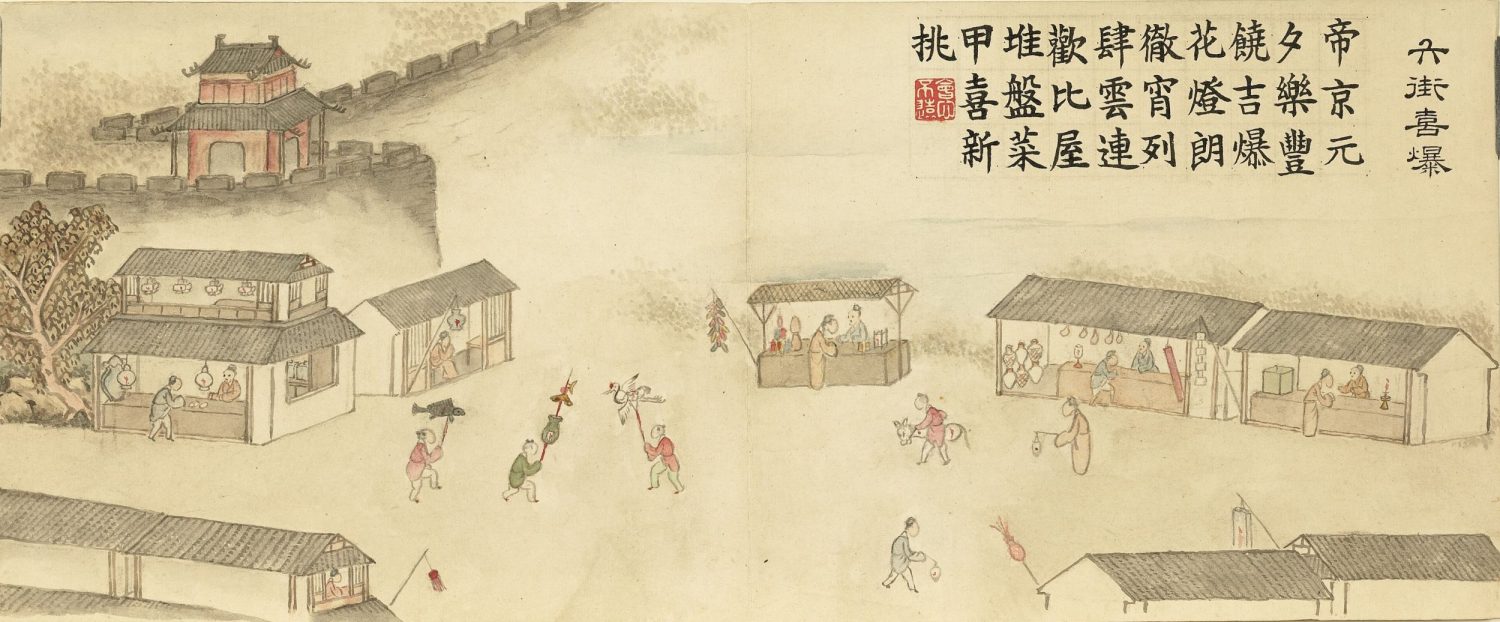 六街喜爆
帝京元
夕樂豐
饒吉爆
花燈朗
徹宵列
肆雲連
歡比屋
堆盤菜
甲喜新
挑
會心不遠